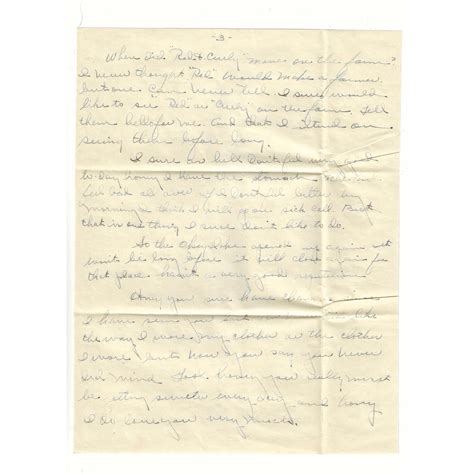 -3-
When did "Red & Curly" move on the farm?
I never thought "Red" would make a farmer
but one can never tell. I sure would
like to see Red & "Curly" on the farm. Tell
them hello for me. And that I intend on
seeing them before long.
I sure as hell don't feel very good
to-day honey I have the stomach
all over. If I don't feel better
morning I think I will go on sick call. But
that is one thing I sure don't like to do.
So the opened up again
won't be long before it will close again for
that place hasn't a very good reputation.
Honey you sure have
I have seen you like
the way I wore my clothes or the clothes
I wore but now you say you never
did mind. Look honey you really must
be sweeter every day and honey
I do love you very much.